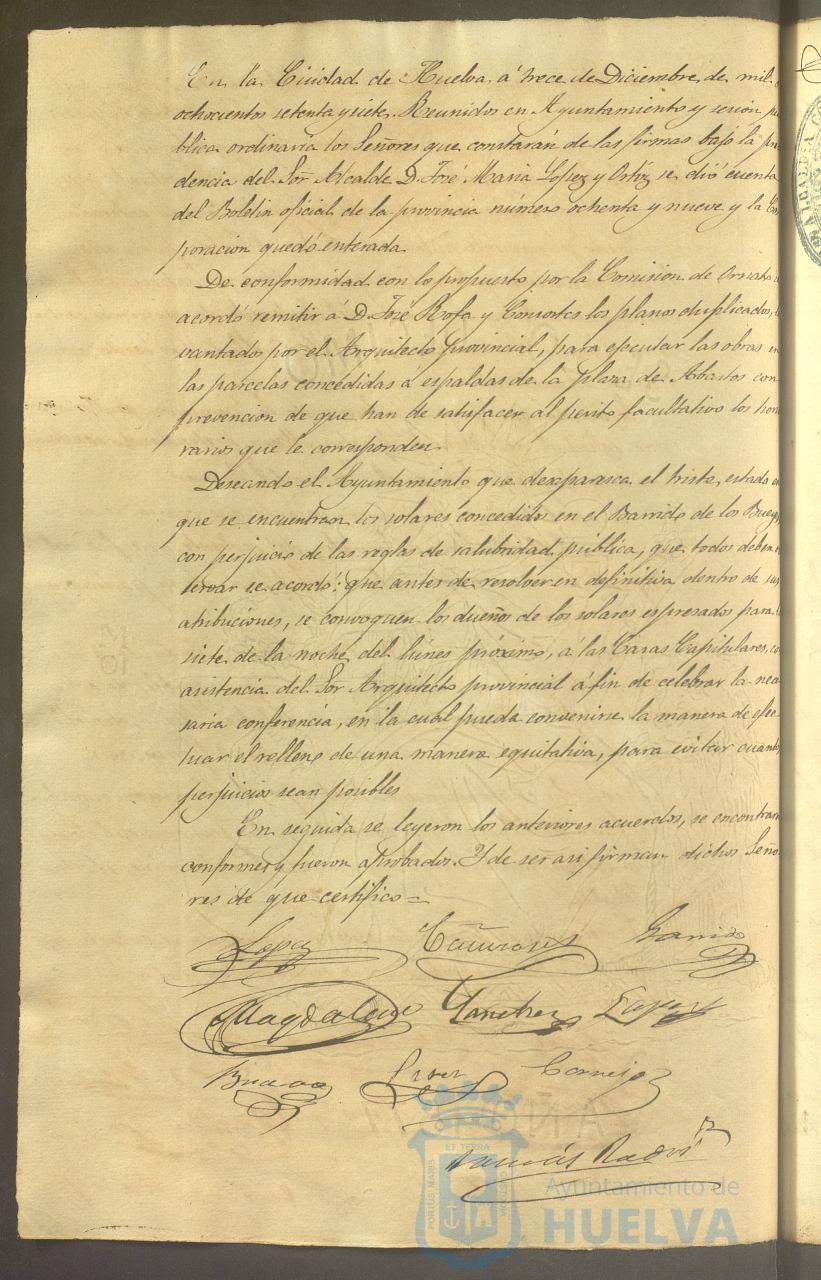 En la Ciudad de Huelva á trece de Diciembre de mil
ochocientos setenta y siete. Reunidos en Ayuntamiento y sesion pú
blica ordinaria los Señores que constarán de las firmas bajo la
dencia del Sor Alcalde D. José Maria Lopez y Ortiz se dió cuenta
del Boletin oficial de la provincia número ochenta y nueve y la Cor
poracion quedó enterada.
De conformidad con lo propuesto por la Comision de Ornato
acordó remitir á D. José Rofa y Consortes los planos duplicados, le
vantados por el Arquitecto provincial, para ejecutar las obras en
las parcelas concedidas á espaldas de la plaza de Abastos con
prevencion de que han de satisfacer al perito facultativo los hono
rarios que le corresponden.
Deseando el Ayuntamiento que desaparesca el triste estado en
que se encuentran los solares concedidos en el Barrido de los Bueyes
con perjuicio de las reglas de salubridad pública, que todos deben
servar se acordó: que antes de resolver en definitiva dentro de sus
atribuciones, se convoquen los dueños de los solares espresados para
siete de la noche del lúnes próximo, á las Casas Capitulares, co
asistencia del Sor Arquitecto provincial á fin de celebrar la nece
saria conferencia, en la cual pueda convenirse la manera de efec
tuar el relleno de una manera equitativa, para evitar cuantos
perjuicios sean posibles
En seguida se leyeron los anteriores acuerdos, se encontraron
conformes y fueron aprobados. Y de ser asi firman dichos Seño
res de que certifico=
Lopez Garrido
Magdalena Sanchez Lopez
Bravo Cornejo
ET TERRA
PORTUS MARIS
CUSTODIA
Ayuntamiento de
HUELVA
ALCALDIA CO